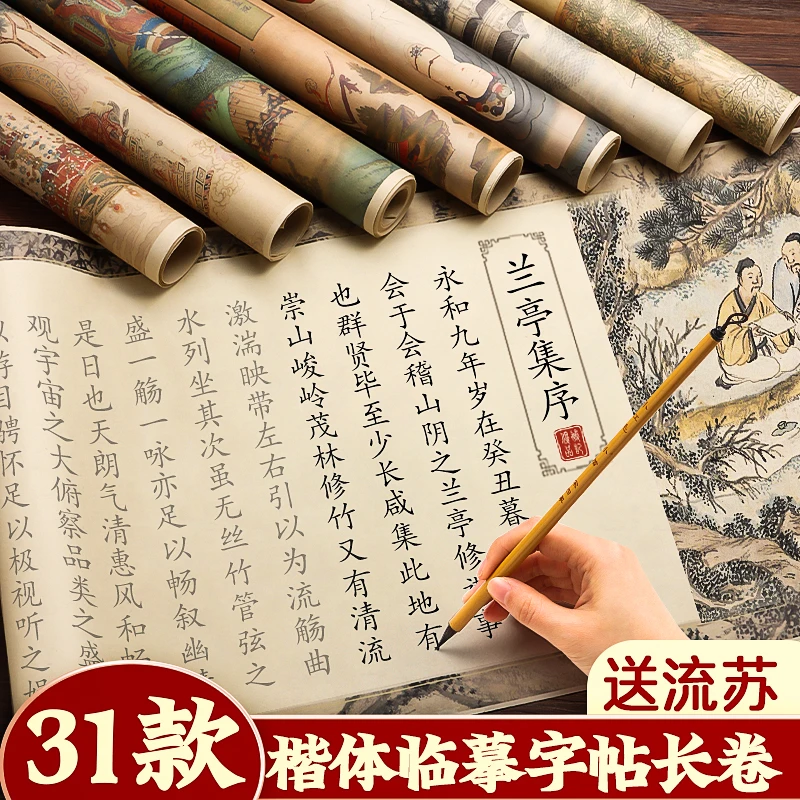 兰亭集序
永和九年岁在癸丑暮
会于会稽山阴之兰亭修
事
也群贤毕至少长咸集此地有
崇山峻岭茂林修竹又有清流
激湍映带左右引以为流觞曲
水列坐其次虽无丝竹管弦之
盛一觞一咏亦足以畅叙幽
是日也天朗气清惠风和畅
观宇宙之大俯察品类之盛
游目骋怀足以极视听之娱
送流苏
31款
楷体临摹字帖长卷